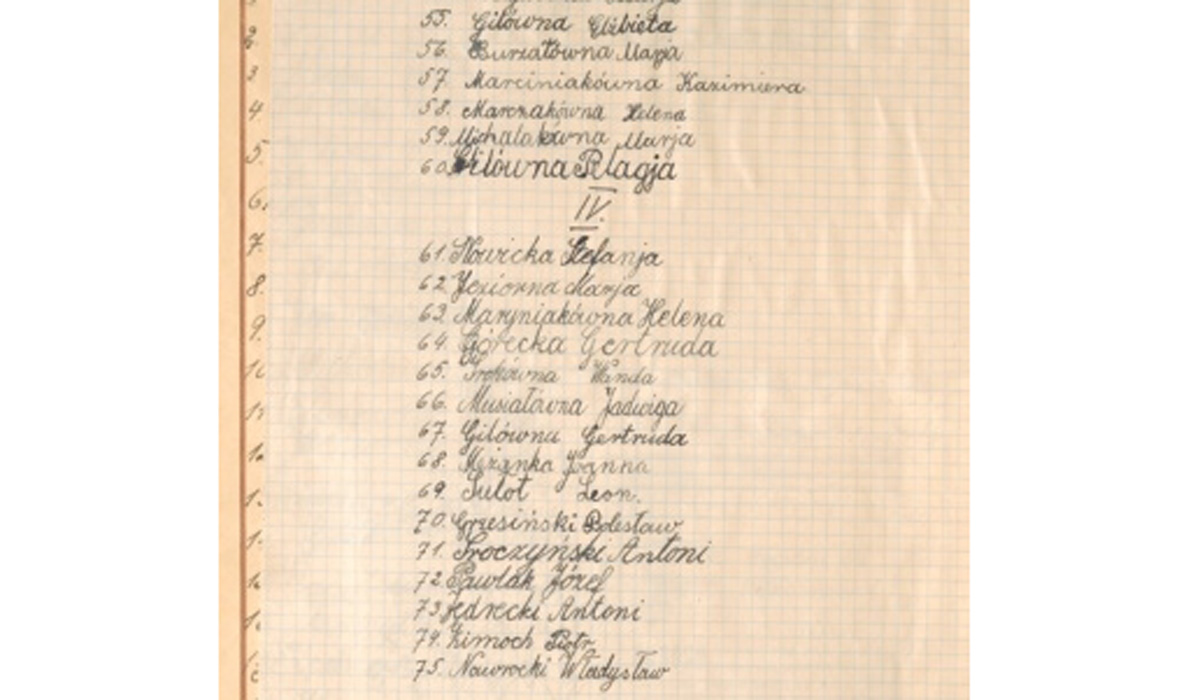 55. Gilówna Elżbieta
56. Burzatówna Marja
57. Marciniakówna Kazimiera
58. Marczakówna Helena
59. Michalakówna Marja
60. Gilówna Pelagja
IV.
61. Nowicka Stefanja
62. Jeziorna Marja
63. Maryniakówna Helena
64. Górecka Gertruda
65. Wanda
66. Musiałówna Jadwiga
67. Gilówna Gertruda
68. Joanna
69. Sulot Leon.
70. Grzesiński Bolesław
71. Troczyński Antoni
72. Pawlak Józef
73. Jędrecki Antoni
74. Zimoch Piotr
75. Nawrocki Władysław
2
3
4
5.
6.
7.
8.
9.